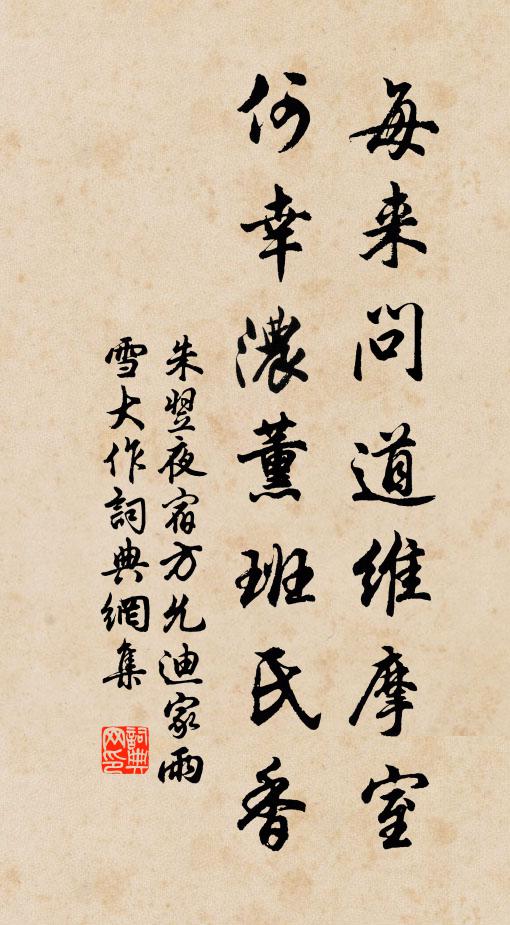 每来问道維摩室
何幸濃薰班氏香
朱翌夜宿方允迪家雨
雪大作詞典網集
詞典網印